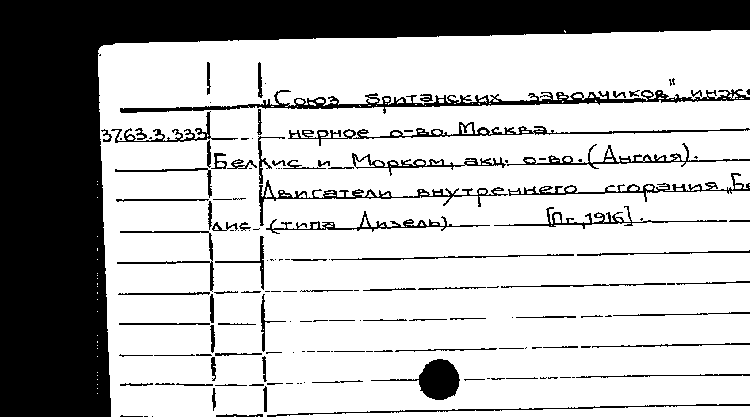 „Союз британских заводчиков", инже
37.63.3.333 нерное о-во. Москва.
Беллис и Морком, акц. о-во. (Англия).
Двигатели внутреннего сгорания „Бе
лис (типа Дизель). [Пг., 1916].